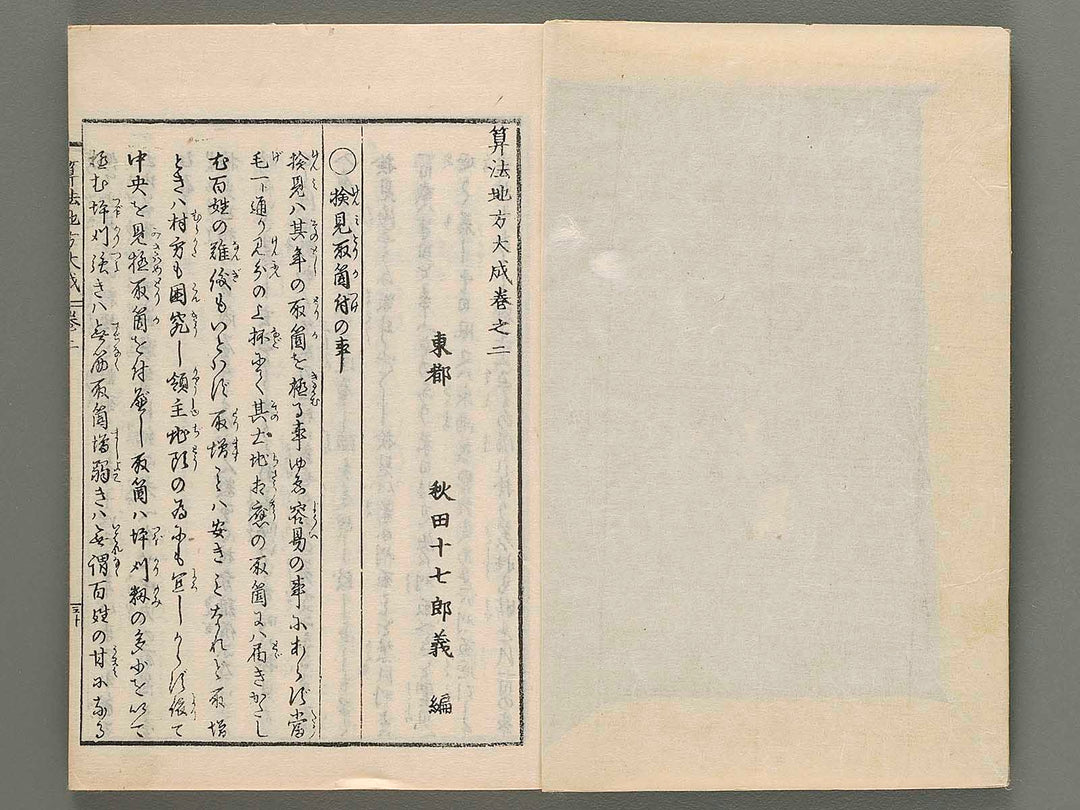 算法地方大成巻之二
東都　秋田十七郎義　編
○検見取箇付の事
検見ハ其年の取箇を極る事ゆゑ容易の事にあらず當
毛一ト通り見分の上抔にてハ其土地相應の取箇にハ届きがたし
尤百姓の難儀もいとハず取増ミハ安きミなれど取増
ときハ村方も困窮し領主地頭の為にも宜しからず依て
中央を見極取箇を付べし取箇ハ坪刈籾の多少を以て
極む坪刈強きハ無筋取箇増弱きハ無謂百姓の甘に成る
算法地方大成　巻二